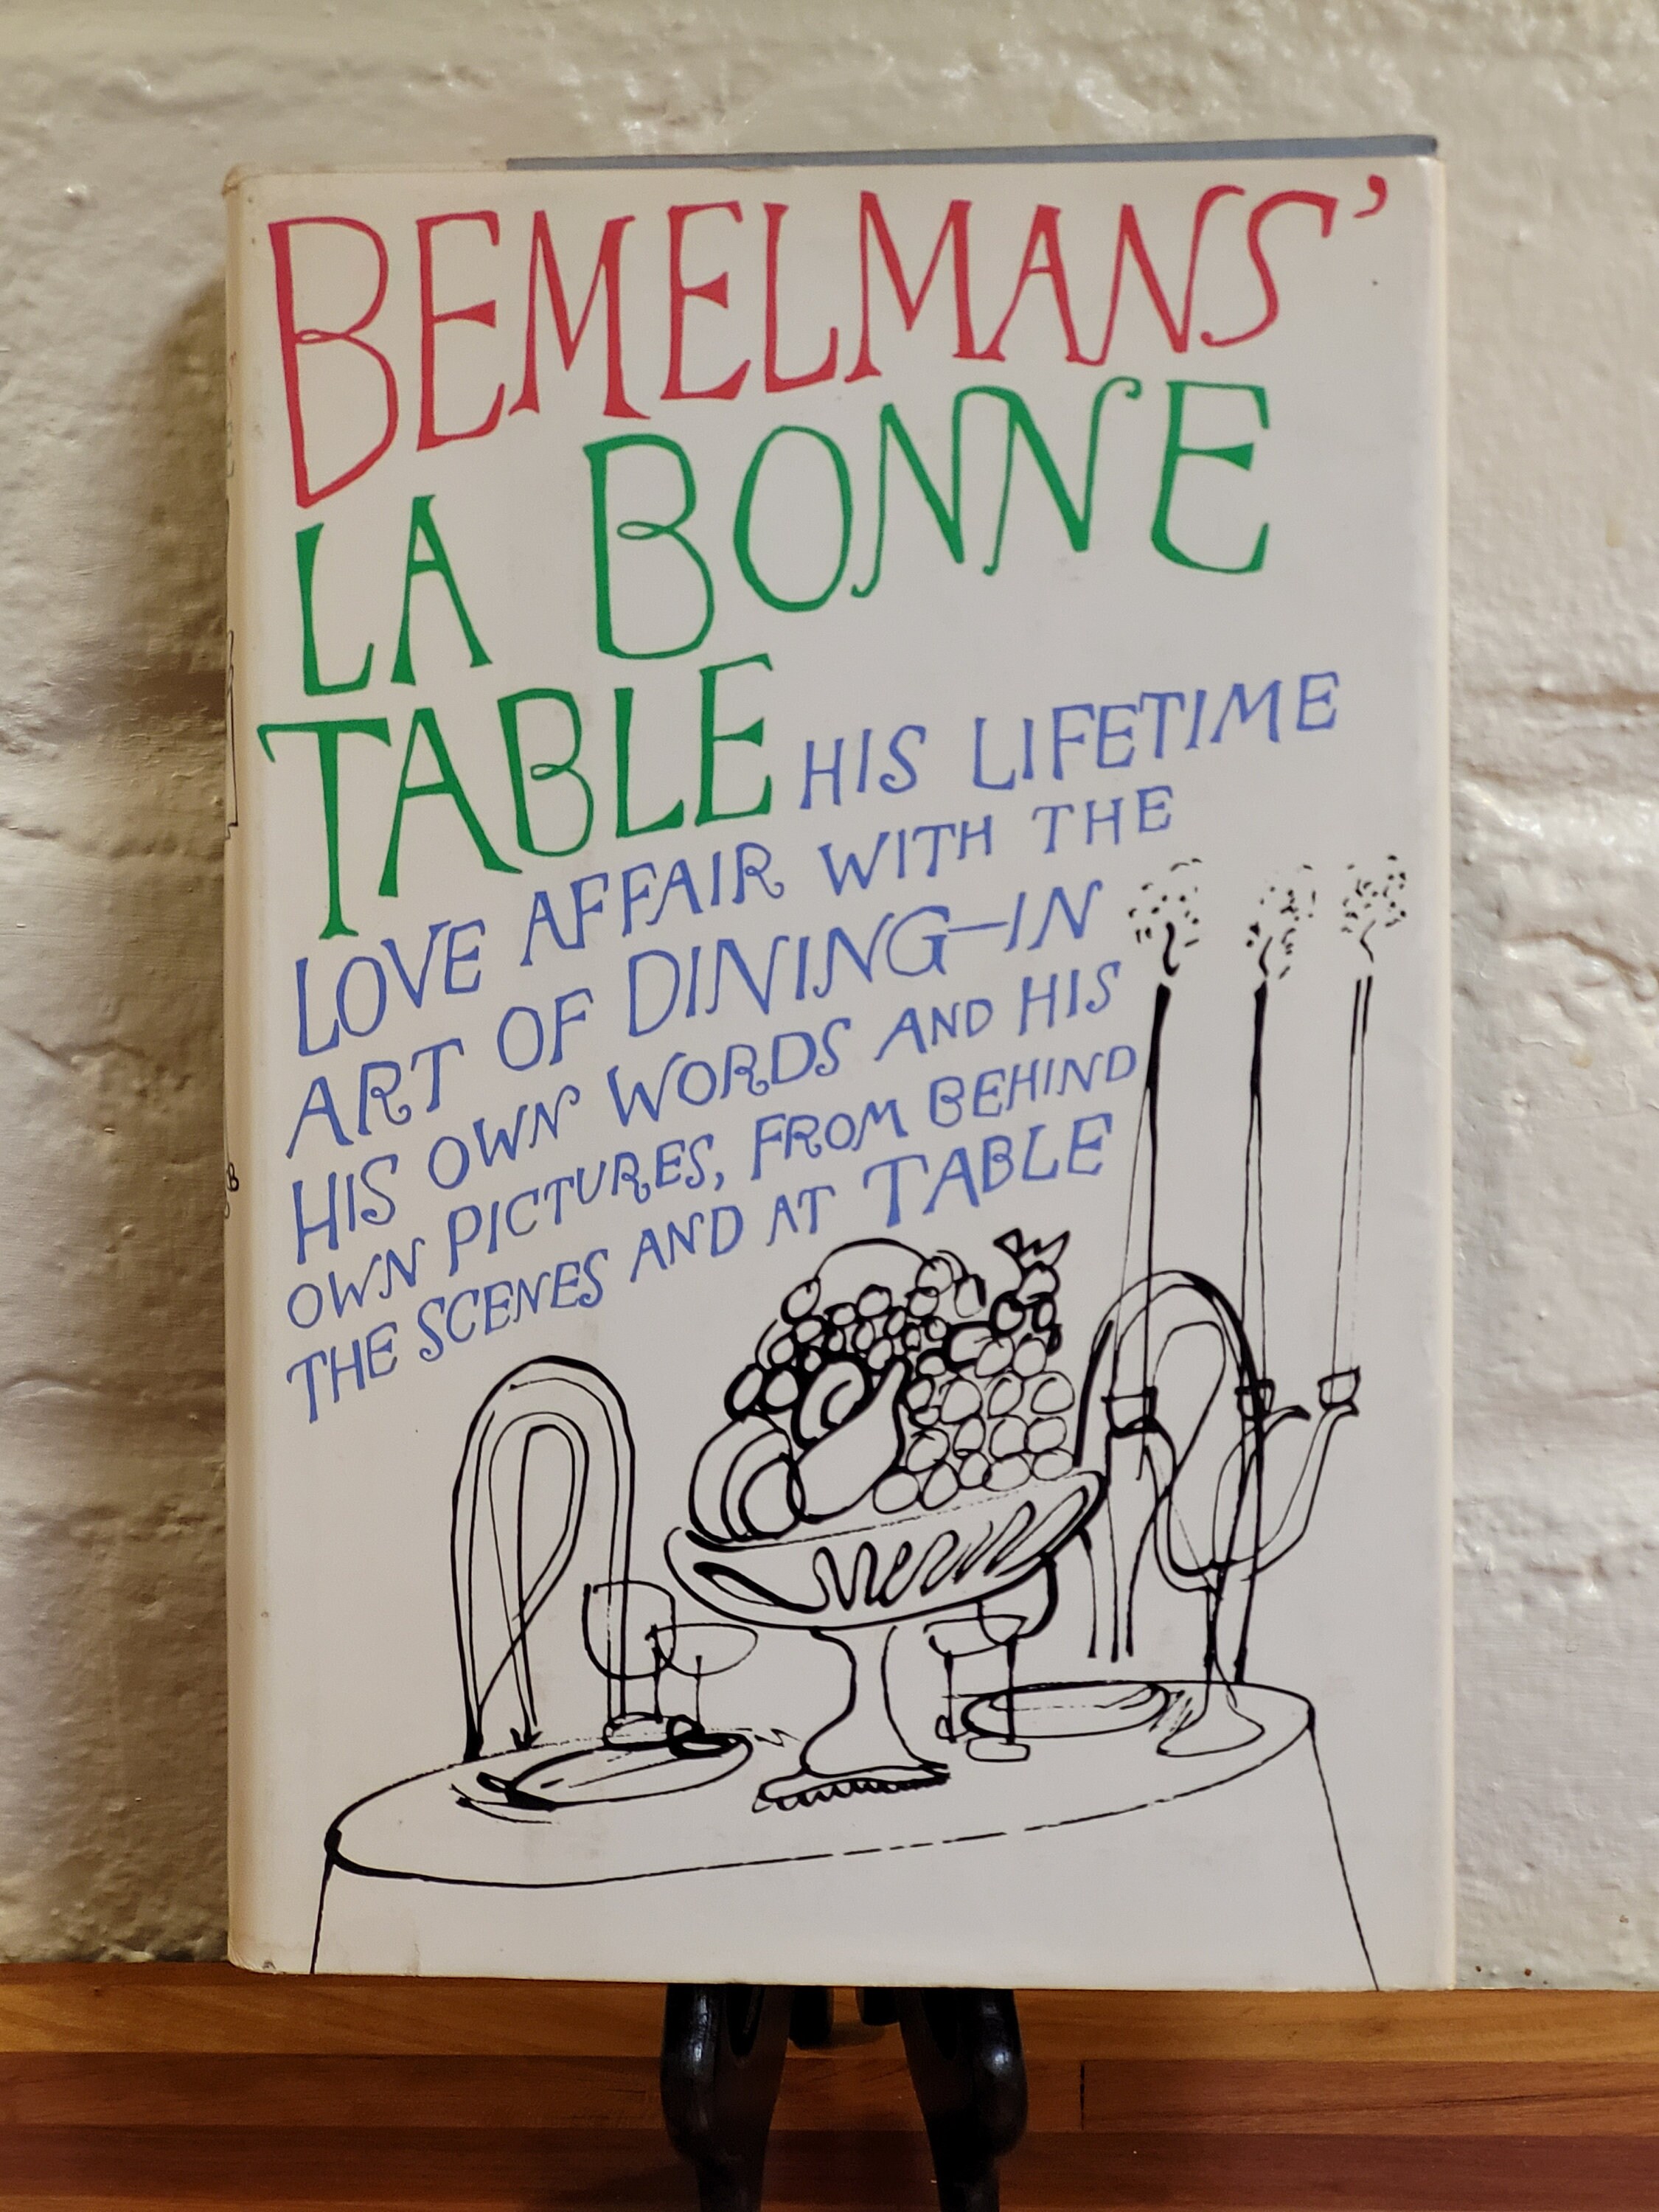 BEMELMANS'
LA BONNE
TABLE HIS LIFETIME
LOVE AFFAIR WITH THE
ART OF DINING—IN
HIS OWN WORDS AND HIS
OWN PICTURES, FROM BEHIND
THE SCENES AND AT TABLE